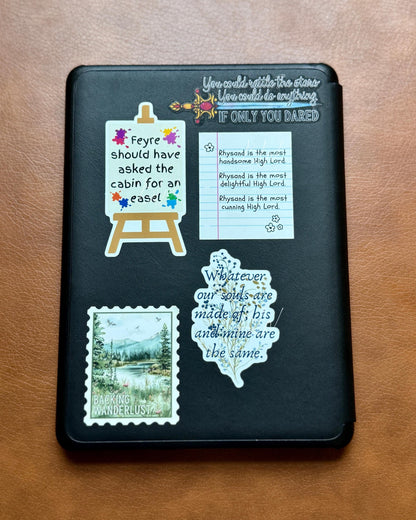 You could rattle the stars
You could do anything
IF ONLY YOU DARED
Feyre
should have
asked the
cabin for an
easel
Rhysand is the most
handsome High Lord.
Rhysand is the most
delightful High Lord.
Rhysand is the most
cunning High Lord.
Whatever
our souls are
made of, his
and mine are
the same.
BACKING
WANDERLUST